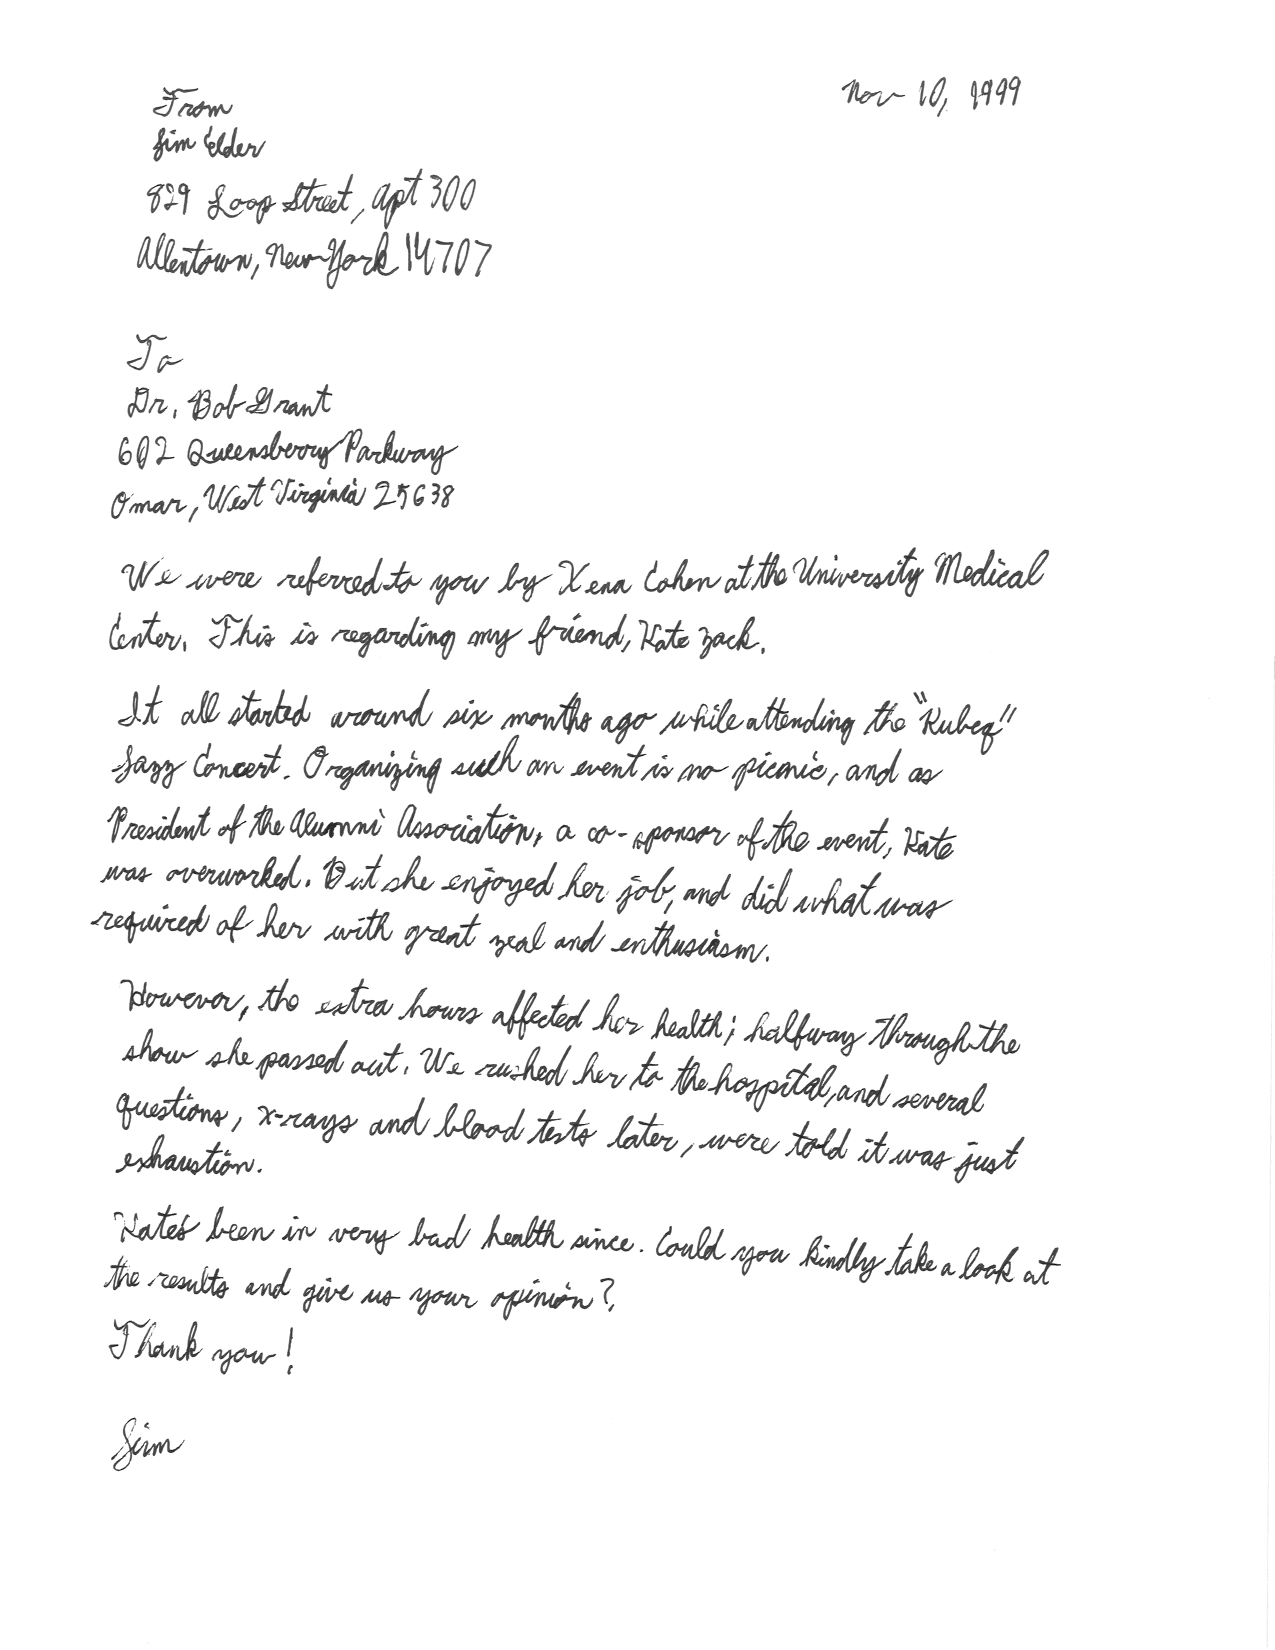 Nov 10, 1999
From
Jim Elder
829 Loop Street, Apt 300
Allentown, New York 14707
To
Dr. Bob Grant
602 Queensberry Parkway
Omar, West Virginia 25638
We were referred to you by Xena Cohen at the University Medical
Center. This is regarding my friend, Kate Zack.
It all started around six months ago while attending the "Rubeq"
Jazz Concert. Organizing such an event is no picnic, and as
President of the Alumni Association, a co-sponsor of the event, Kate
was overworked. But she enjoyed her job, and did what was
required of her with great zeal and enthusiasm.
However, the extra hours affected her health; halfway through the
show she passed out. We rushed her to the hospital, and several
questions, x-rays and blood tests later, were told it was just
exhaustion.
Kate's been in very bad health since. Could you kindly take a look at
the results and give us your opinion?
Thank you!
Jim